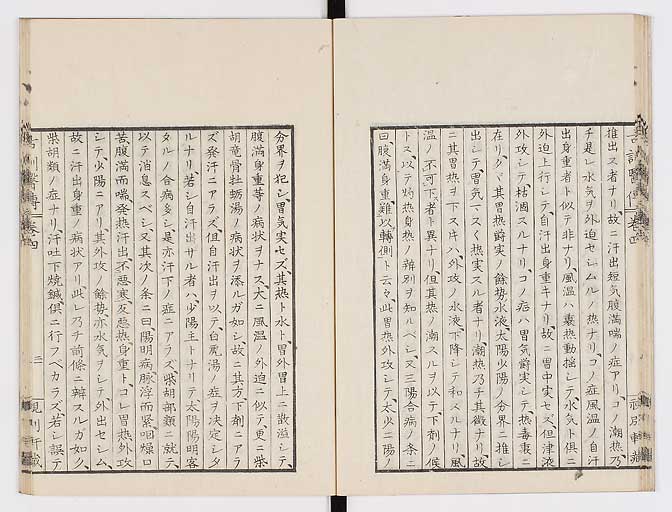 推出ス者ナリ、故ニ汗出短気腹満喘ノ症アリ、コノ潮熱乃
チ是レ水気ヲ外迫セシムルノ熱ナリ、コノ症風温ノ自汗
出身重者ト似テ非ナリ、風温ハ裏熱動揺シテ、水気ト倶ニ
外迫上行シテ、自汗出身重キナリ、故ニ胃中実セズ、但津液
外攻シテ枯涸スルナリ、コノ症ハ胃気欝実シテ熱毒裏ニ
在リ、タヾ其胃熱欝実ノ餘勢、水液太陽少陽ノ分界ニ推シ
出シテ、胃気マスく熱実スル者ナリ、潮熱乃チ其徴ナリ、故
ニ其胃熱ヲ下ス片ハ、外攻ノ水液、下降シテ和スルナリ、風
温ノ不可下者ト異ナリ、但其熱ノ潮スルヲ以テ、下剤ノ候
トス、以テ灼熱身熱ノ辨別ヲ知ルベシ、又三陽合病ノ条ニ
曰、腹満身重、難以轉側ト云々、此胃熱外攻シテ、太少二陽ノ
分界ヲ犯シ、胃気実セズ、其熱ト水ト、胃外胃上ニ散溢シテ、
腹満身重等ノ病状ヲナス、大ニ風温ノ外迫ニ似テ、更ニ柴
胡竜骨牡蛎湯ノ病状ヲ添ルガ如シ、故ニ其方、下剤ニアラ
ズ発汗ニアラズ、但自汗出ヲ以テ、白虎湯ノ症ヲ決定シタ
ルナリ、若シ自汗出サル者ハ、少陽主トナリテ、太陽陽明客
タルノ合病多シ、是亦汗下ノ症ニアラズ、柴胡部類ニ就テ、
以テ消息スベシ、又其次ノ条ニ曰、陽明病脉浮而緊、咽燥口
苦、腹満而喘、発熱汗出、不悪寒、反悪熱身重ト、コレ胃熱外攻
シテ、少陽ニアリ、其外攻ノ餘勢、亦水気ヲシテ外出セシム、
故ニ汗出身重ノ病状アリ、此レ乃チ前條ニ辨スルガ如ク、
柴胡類ノ症ナリ、汗吐下焼鍼、倶ニ行フベカラズ、若シ誤テ
巻四
三